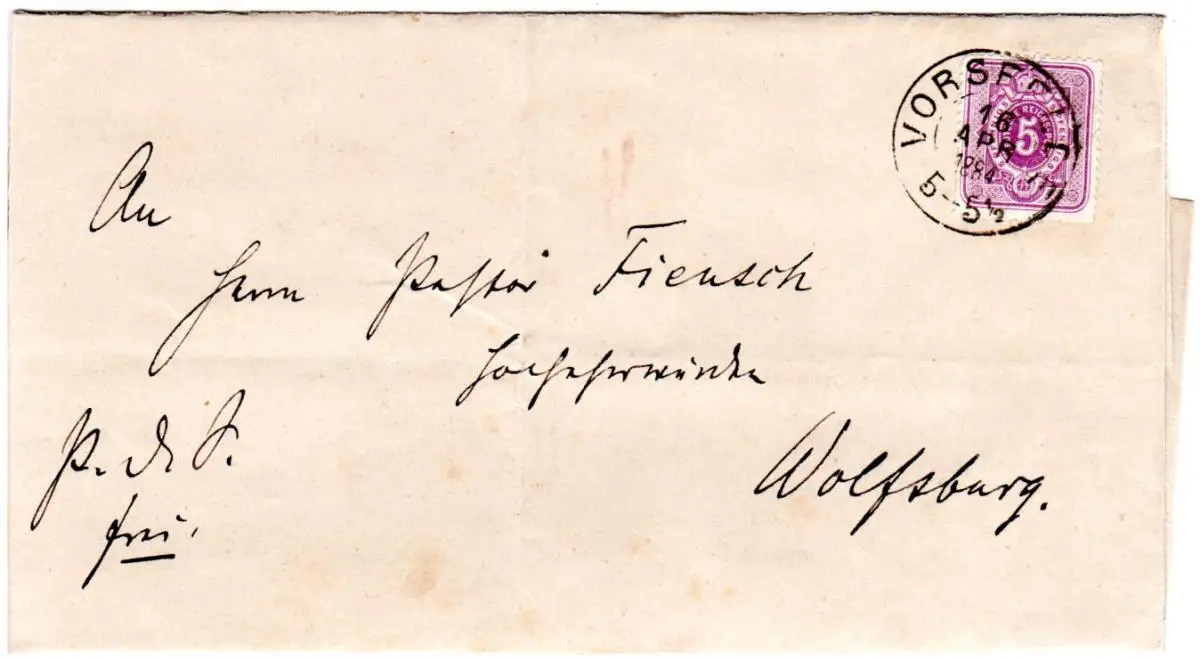 An
Herrn Pastor Fiensch
Hochehrwürden
Wolfsburg.
P. d. S.
frei.
VORSFELDE
16
APR
1884
5-5½
5